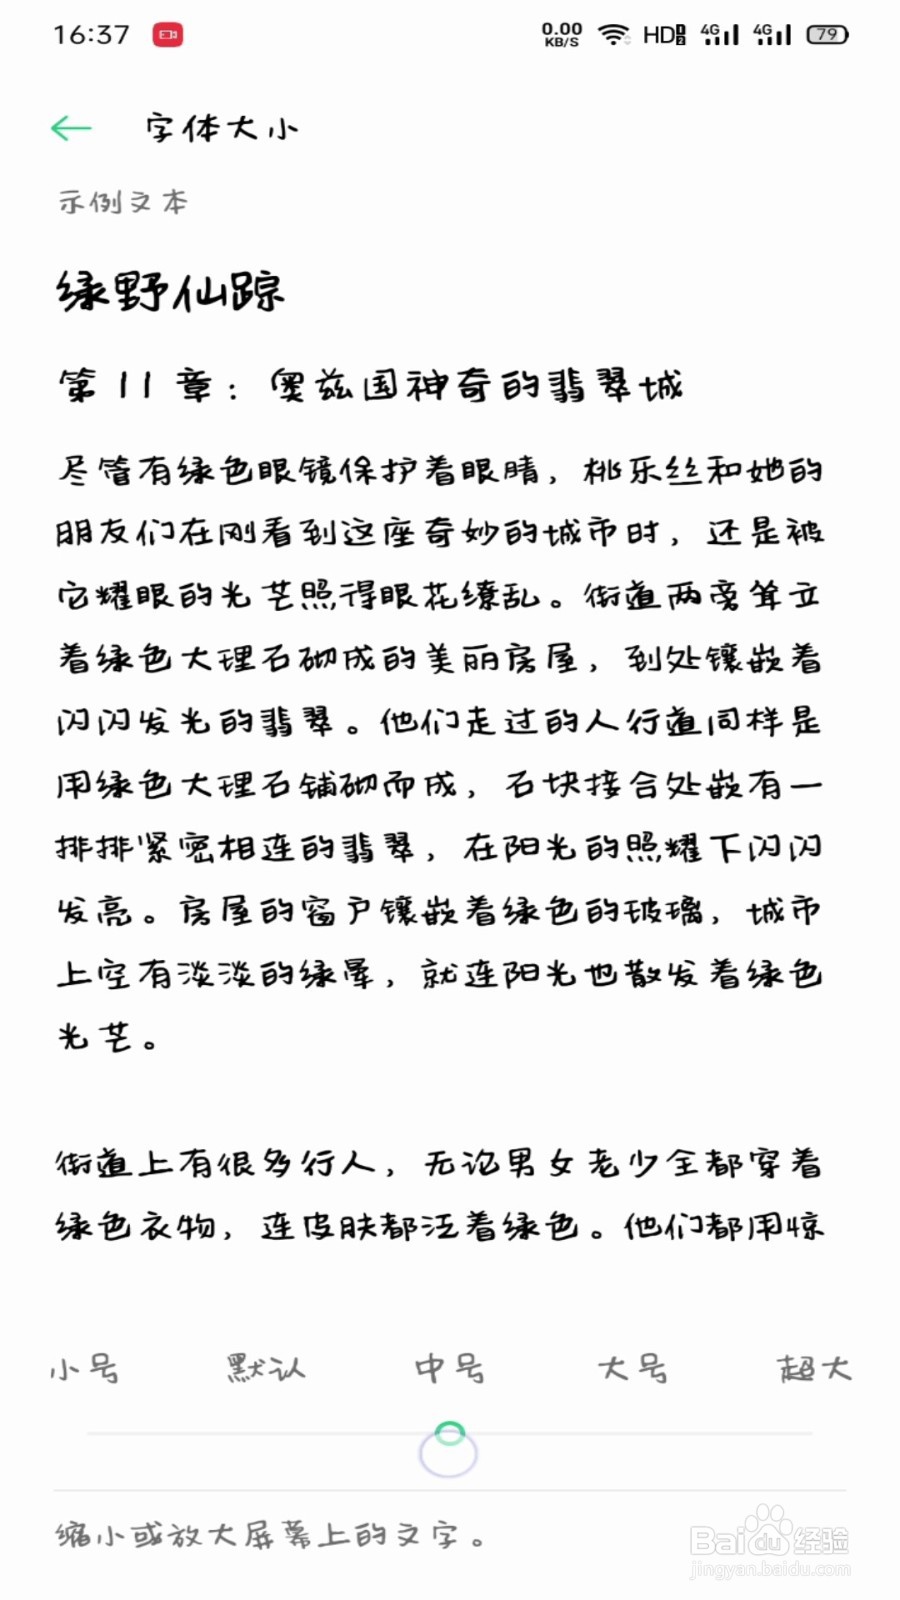 16:37
0.00 KB/S HD 1 2 4G 4G 79
字体大小
示例文本
绿野仙踪
第 11 章：奥兹国神奇的翡翠城
尽管有绿色眼镜保护着眼睛，桃乐丝和她的
朋友们在刚看到这座奇妙的城市时，还是被
它耀眼的光芒照得眼花缭乱。街道两旁耸立
着绿色大理石砌成的美丽房屋，到处镶嵌着
闪闪发光的翡翠。他们走过的人行道同样是
用绿色大理石铺砌而成，石块接合处嵌有一
排排紧密相连的翡翠，在阳光的照耀下闪闪
发亮。房屋的窗户镶嵌着绿色的玻璃，城市
上空有淡淡的绿晕，就连阳光也散发着绿色
光芒。
街道上有很多行人，无论男女老少全都穿着
绿色衣物，连皮肤都泛着绿色。他们都用惊
小号 默认 中号 大号 超大
缩小或放大屏幕上的文字。
Baidu 经验
jingyan.baidu.com